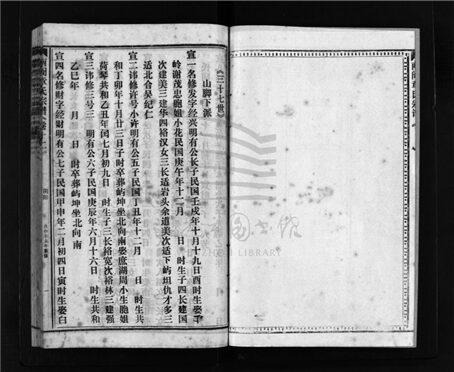 《三十七世》
山脚下派
宣一名修发字经兴明有公长子民国壬戌年十月十九日酉时生娶
岭谢茂忠胞姐小花民国庚午年十二月 日 时生子四长建国
次建美三建华四裕汉女三长适岩头余道美次适下屿坦仇才多三
适北台晏纪仁
宣二讳修许号小许明有公五子民国丁丑年十二月 日 时生共
和丁卯年十月廿三日子时卒葬屿坤坐北向南娶庶湖周小生胞姐
荷琴共和乙丑年闰七月初九日 时生子三长裕宽次裕林三建强
宣三讳修三号三 明有公六子民国庚辰年六月十六日 时生共和
乙巳年 月 日 时卒葬屿坤坐北向南
宣四名修财字经财明有公七子民国甲申年二月初四日寅时生娶白